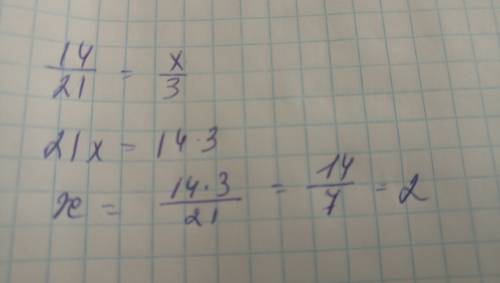 14/21 = x/3
21x = 14·3
x = 14·3/21 = 14/7 = 2